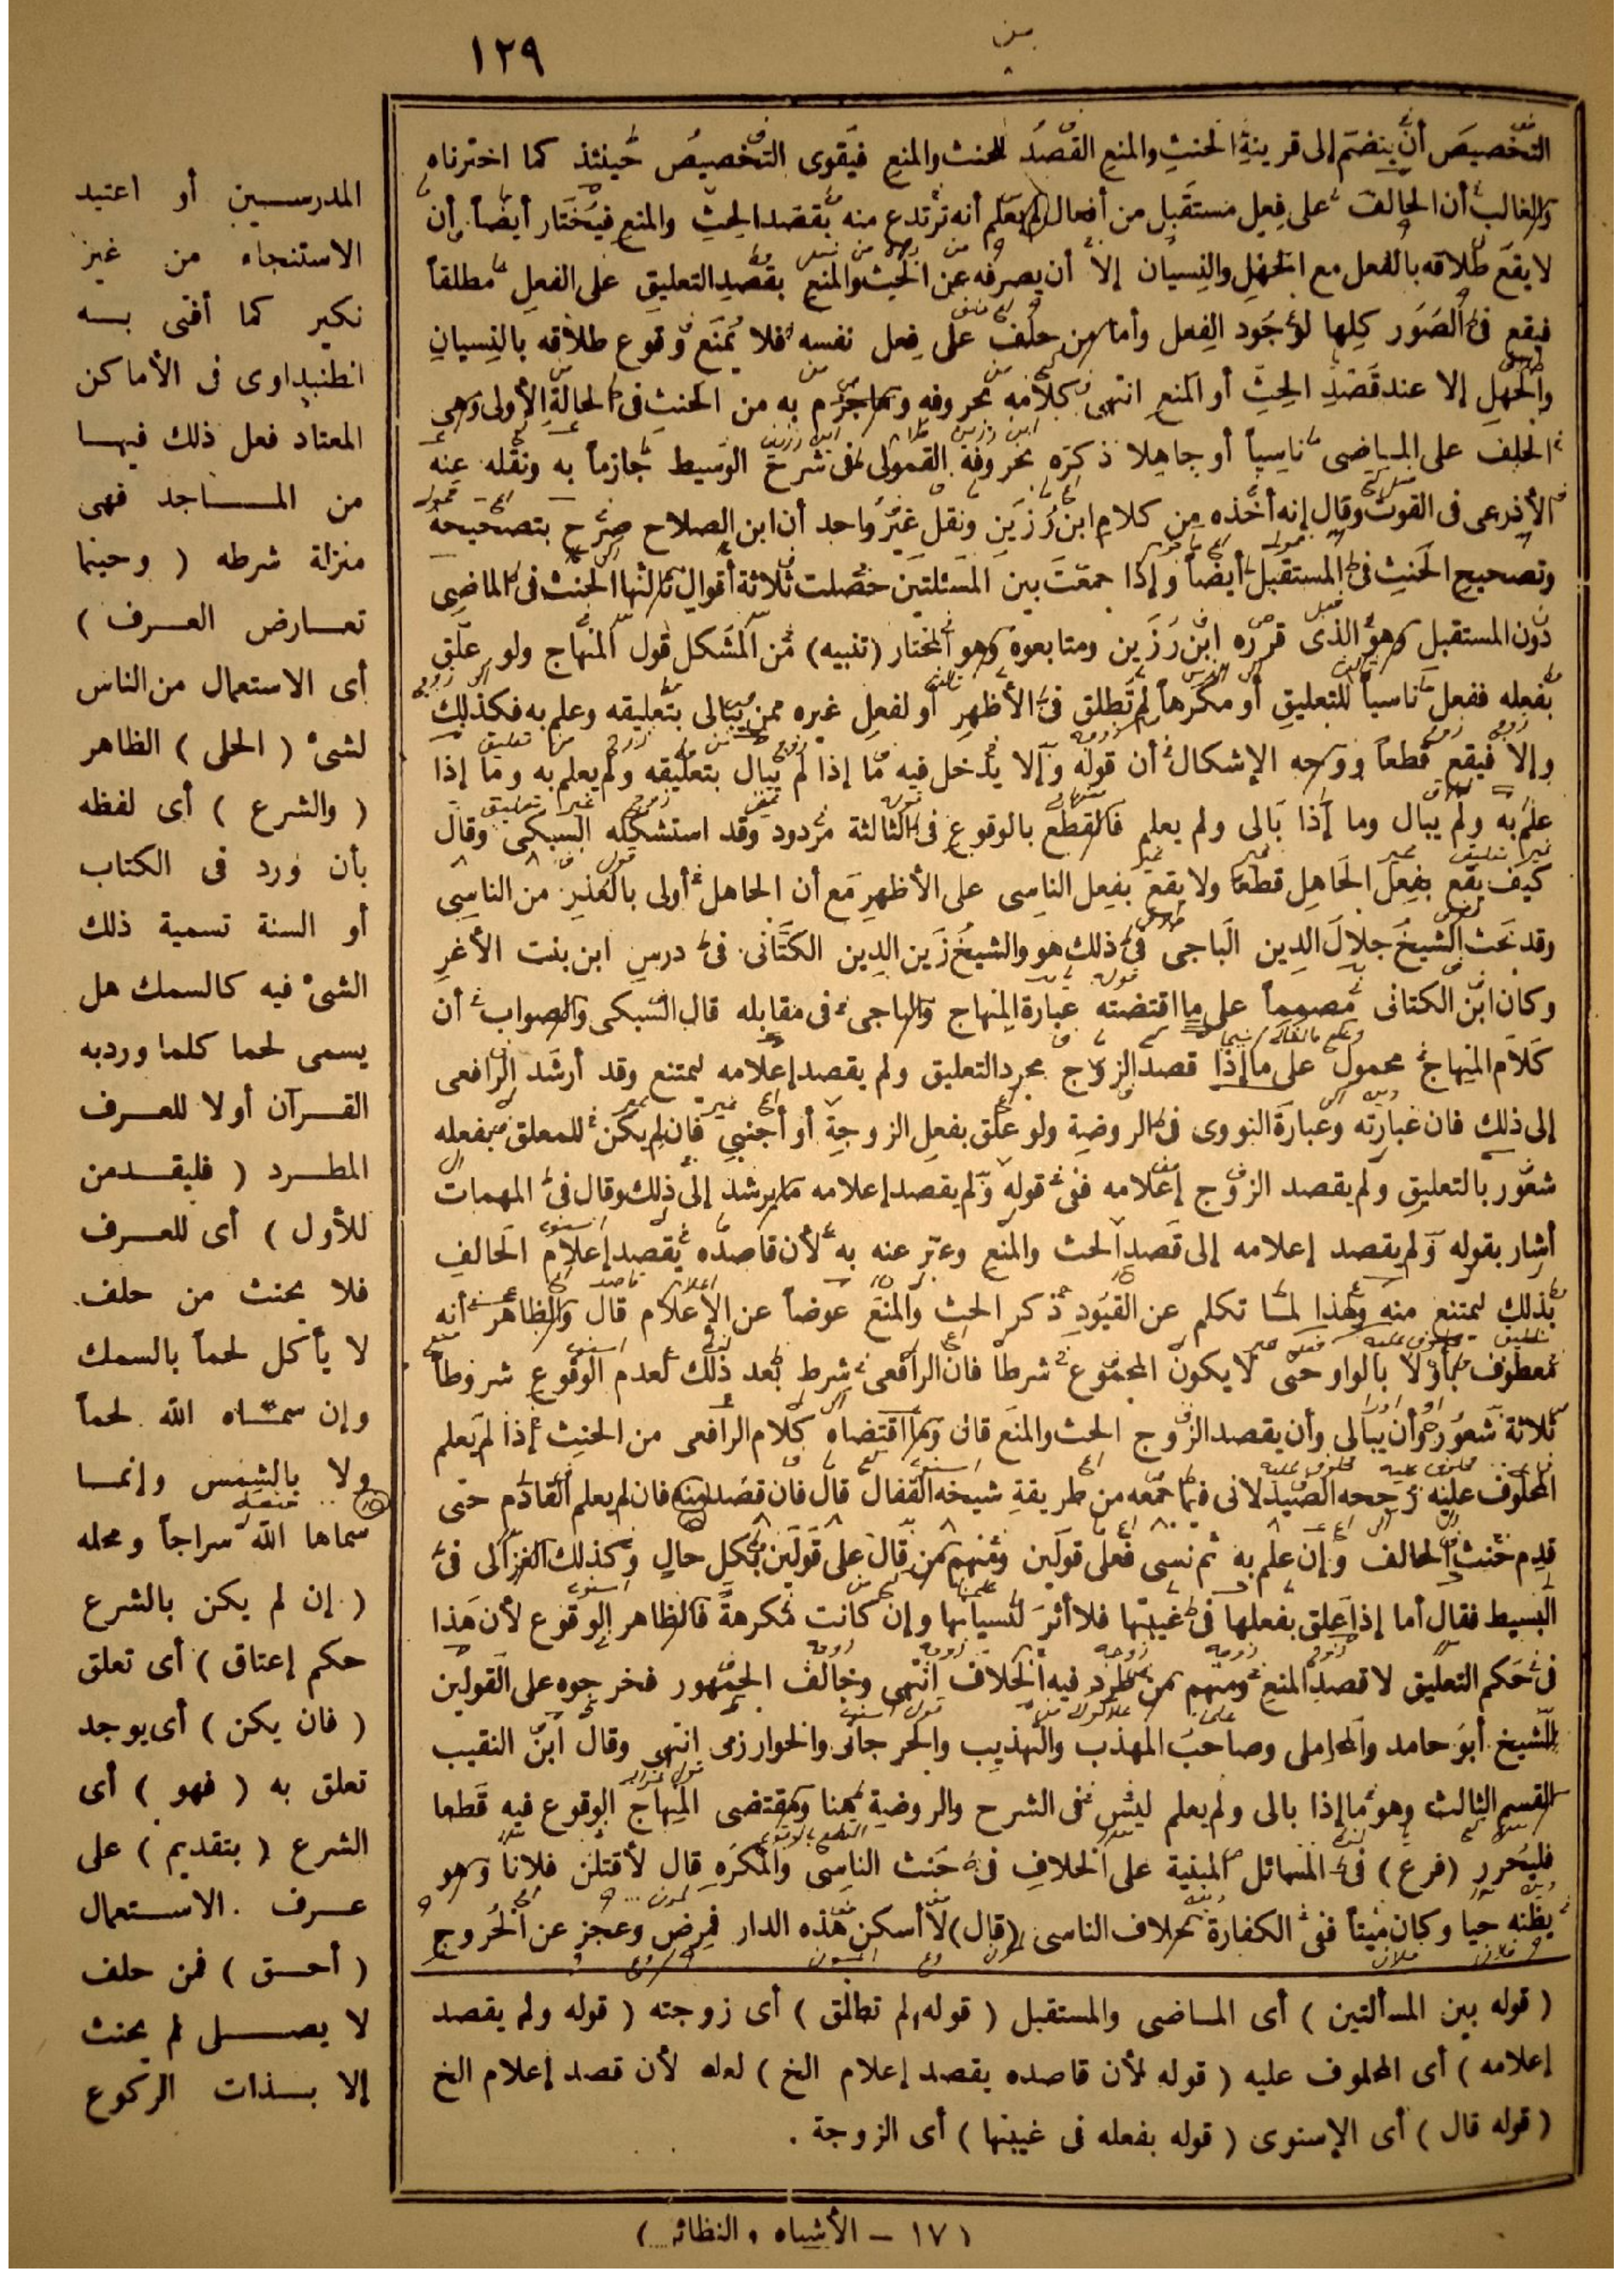 ١٢٩
التخصيص أن ينضم إلى قرينة الحنث والمنع القصد للحنث والمنع فيقوى التخصيص حينئذ كما اخترناه
والغالب أن الحالف على فعل مستقبل من أفعال لم يعلم أنه ترتدع منه بقصد الحث والمنع فيختار أيضاً أن
لا يقع طلاقه بالفعل مع الجهل والنسيان إلا أن يصرفه عن الحث والمنع بقصد التعليق على الفعل مطلقاً
فيقع فى الصور كلها لوجود الفعل وأما من حلف على فعل نفسه فلا يمنع وقوع طلاقه بالنسيان
والجهل إلا عند قصد الحث أو المنع انتهى كلامه بحروفه وما جزم به من الحنث فى الحالة الأولى وهى
الحلف على المـاضى ناسياً أو جاهلا ذكره بحروفه القمولى فى شرح الوسيط جازماً به ونقله عنه
الأذرعى فى القوت وقال إنه أخذه من كلام ابن رزين ونقل غير واحد أن ابن الصلاح صرح بتصحيحه
وتصحيح الحنث فى المستقبل أيضاً وإذا جمعت بين المسئلتين حصلت ثلاثة أقوال ثالثها الحنث فى الماضى
دون المستقبل وهو الذى قرره ابن رزين ومتابعوه وهو المختار (تنبيه) من المشكل قول المنهاج ولو علق
بفعله ففعل ناسياً للتعليق أو مكرهاً لم تطلق فى الأظهر أو لفعل غيره ممن يبالى بتعليقه وعلم به فكذلك
وإلا فيقع قطعاً ووجه الإشكال أن قوله وإلا يدخل فيه ما إذا لم يبال بتعليقه ولم يعلم به وما إذا
علم به ولم يبال وما إذا بالى ولم يعلم فالقطع بالوقوع فى الثالثة مردود وقد استشكله السبكى وقال
كيف يقع بفعل الجاهل قطعا ولا يقع بفعل الناسى على الأظهر مع أن الجاهل أولى بالعذر من الناسى
وقد بحث الشيخ جلال الدين الباجى فى ذلك هو والشيخ زين الدين الكتانى فى درس ابن بنت الأغر
وكان ابن الكتانى مصمماً على ما اقتضته عبارة المنهاج والباجى فى مقابله قال السبكى والصواب أن
كلام المنهاج محمول على ما إذا قصد الزوج مجرد التعليق ولم يقصد إعلامه ليمتنع وقد أرشد الرافعى
إلى ذلك فان عبارته وعبارة النووى فى الروضة ولو علق بفعل الزوجة أو أجنبى فان لم يكن للمعلق بفعله
شعور بالتعليق ولم يقصد الزوج إعلامه ففى قوله ولم يقصد إعلامه ما يرشد إلى ذلك وقال فى المهمات
أشار بقوله ولم يقصد إعلامه إلى قصد الحث والمنع وعبر عنه به لأن قاصده يقصد إعلام الحالف
بذلك ليمتنع منه ولهذا لمـا تكلم عن القيود ذكر الحث والمنع عوضاً عن الإعلام قال والظاهر أنه
معطوف بأو لا بالواو حتى لا يكون المجموع شرطاً فان الرافعى شرط بعد ذلك لعدم الوقوع شروطاً
ثلاثة شعوره وأن يبالى وأن يقصد الزوج الحث والمنع قال وما اقتضاه كلام الرافعى من الحنث إذا لم يعلم
المحلوف عليه رجحه الصيدلانى فيما جمعه من طريقة شيخه القفال قال فان قصد منعه فان لم يعلم القادم حتى
قدم حنث الحالف وإن علم به ثم نسى فعلى قولين ومنهم من قال على قولين بكل حال وكذلك الغزالى فى
البسيط فقال أما إذا علق بفعلها فى غيبتها فلا أثر لنسيانها وإن كانت مكرهة فالظاهر الوقوع لأن هذا
فى حكم التعليق لا قصد المنع ومنهم من طرد فيه الخلاف انتهى وخالف الجمهور فخرجوه على القولين
الشيخ أبو حامد والمحاملى وصاحب المهذب والتهذيب والجرجانى والخوارزمى انتهى وقال ابن النقيب
القسم الثالث وهو ما إذا بالى ولم يعلم ليس فى الشرح والروضة هنا ومقتضى المنهاج الوقوع فيه قطعا
فليحرر (فرع) فى المسائل المبنية على الخلاف فى حنث الناسى والمكره قال لأقتلن فلانا وهو
يظنه حيا وكان ميتاً ففى الكفارة خلاف الناسى (قال) لا أسكن هذه الدار فمرض وعجز عن الخروج
( قوله بين المسألتين ) أى المـاضى والمستقبل ( قوله لم تطلق ) أى زوجته ( قوله ولم يقصد
إعلامه ) أى المحلوف عليه ( قوله لأن قاصده يقصد إعلام الخ ) لعله لأن قصد إعلام الخ
( قوله قال ) أى الإسنوى ( قوله بفعله فى غيبتها ) أى الزوجة .
المدرسـين أو اعتيد
الاستنجاء من غير
نكير كما أفتى بـه
الطنبداوى فى الأماكن
المعتاد فعل ذلك فيهـا
من المسـاجد فهى
منزلة شرطه ( وحيثما
تعـارض العـرف )
أى الاستعمال من الناس
لشىء ( الحلى ) الظاهر
( والشرع ) أى لفظه
بأن ورد فى الكتاب
أو السنة تسمية ذلك
الشىء فيه كالسمك هل
يسمى لحما كلما ورد به
القـرآن أولا للعـرف
المطـرد ( فليقـدمن
للأول ) أى للعـرف
فلا يحنث من حلف
لا يأكل لحماً بالسمك
وإن سمـاه الله لحماً
ولا بالشمس وإنمـا
سماها الله سراجاً ومحله
( إن لم يكن بالشرع
حكم إعتاق ) أى تعلق
( فان يكن ) أى يوجد
تعلق به ( فهو ) أى
الشرع ( بتقديم ) على
عـرف الاسـتعمال
( أحـق ) فمن حلف
لا يصـلى لم يحنث
إلا بـذات الركوع
( ١٧ – الأشباه والنظائر )